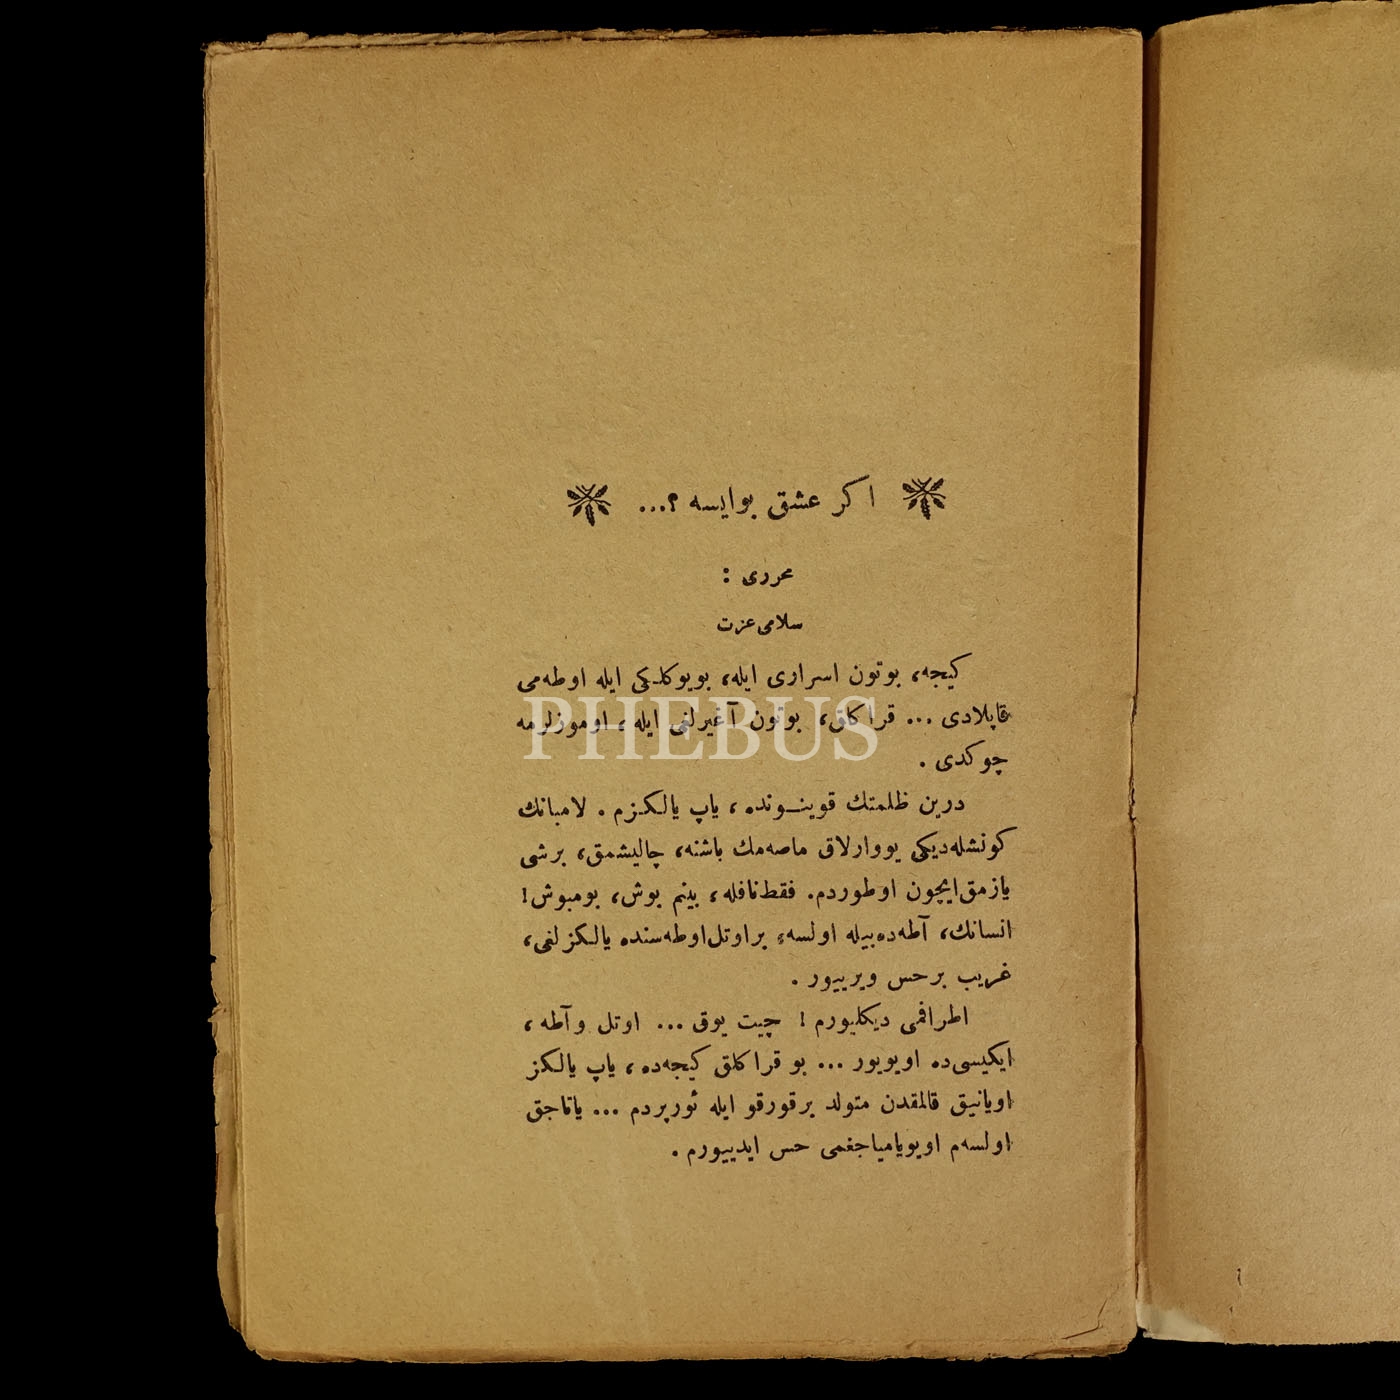 اكر عشق بوايسه ؟...
محررى :
سلامى عزت
كيجه، بوتون اسرارى ايله، بويوكلكى ايله اوطه‌مى
قاپلادى ... قراكلق، بوتون آغيرلغى ايله، اوموزلرمه
چوكدى .
درين ظلمتك قوينـونده، ياپ يالكـزم . لامبانك
كونشله‌ديكى يووارلاق ماصه‌مك باشنه، چاليشمق، برشى
يازمق‌ايچون اوطوردم. فقط‌نافله، بينم بوش، بومبوش!
انسانك، آطه‌ده‌بيله اولسه، براوتل‌اوطه‌سنده يالكزلغى،
غريب برحس ويرييور .
اطرافمى ديكليورم ! چيت يوق ... اوتل وآطه ،
ايكيسى‌ده اويويور ... بو قراكلق كيجه‌ده، ياپ يالكز
اويانيق قالمقدن متولد برقورقو ايله ئورپردم ... ياتاجق
اولسه‌م اويوياميا‌جغمى حس ايدييورم .
PHEBUS